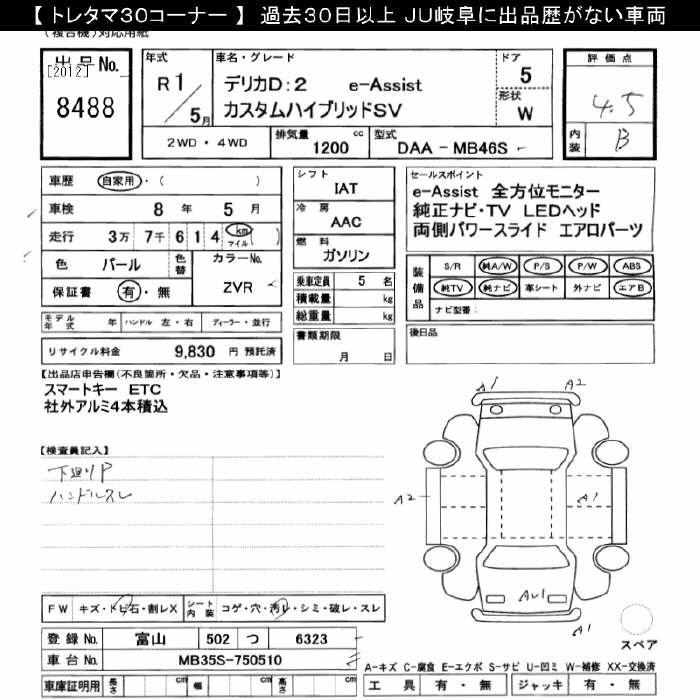 【 トレタマ30コーナー 】 過去30日以上 JU岐阜に出品歴がない車両
(複合機)対応用紙
出品No.
[2012]
8488
年式
R 1
5 月
車名・グレード
デリカD:2 e-Assist
カスタムハイブリッドSV
ドア
5
形状
W
2WD ・ 4WD
排気量 cc
1200
型式
DAA - MB46S
評価点
4.5
内装
B
車歴 自家用 ・ ( )
車検 8 年 5 月
走行 3万 7千 6 1 4 km マイル ( )
色 パール 色替
カラーNo.
ZVR
保証書 有 ・ 無
モデル年式 年 ハンドル 左 ・ 右 ディーラー ・ 並行
リサイクル料金 9,830 円 預託済
シフト
IAT
冷房
AAC
燃料
ガソリン
乗車定員 5 名
積載量 kg
総重量 kg
書類期限
月 日
セールスポイント
e-Assist 全方位モニター
純正ナビ・TV LEDヘッド
両側パワースライド エアロパーツ
装備品
S/R 純A/W P/S P/W ABS
純TV 純ナビ 革シート 外ナビ エアB
ナビ型番：
後日品
【出品店申告欄(不良箇所・欠品・注意事項等)】
スマートキー ETC
社外アルミ4本積込
【検査員記入】
下廻りP
ハンドルスレ
A1
A2
A2
A1
AU1
A1
スペア
FW キズ・トビ石・割レX
シート内装 コゲ・穴・汚レ・シミ・破レ・スレ
登録No. 富山 502 つ 6323
車台No. MB35S-750510
車庫証明用 長さ cm 幅 cm 高さ cm
A-キズ C-腐食 E-エクボ S-サビ U-凹ミ W-補修 XX-交換済
工具 有 ・ 無 ジャッキ 有 ・ 無